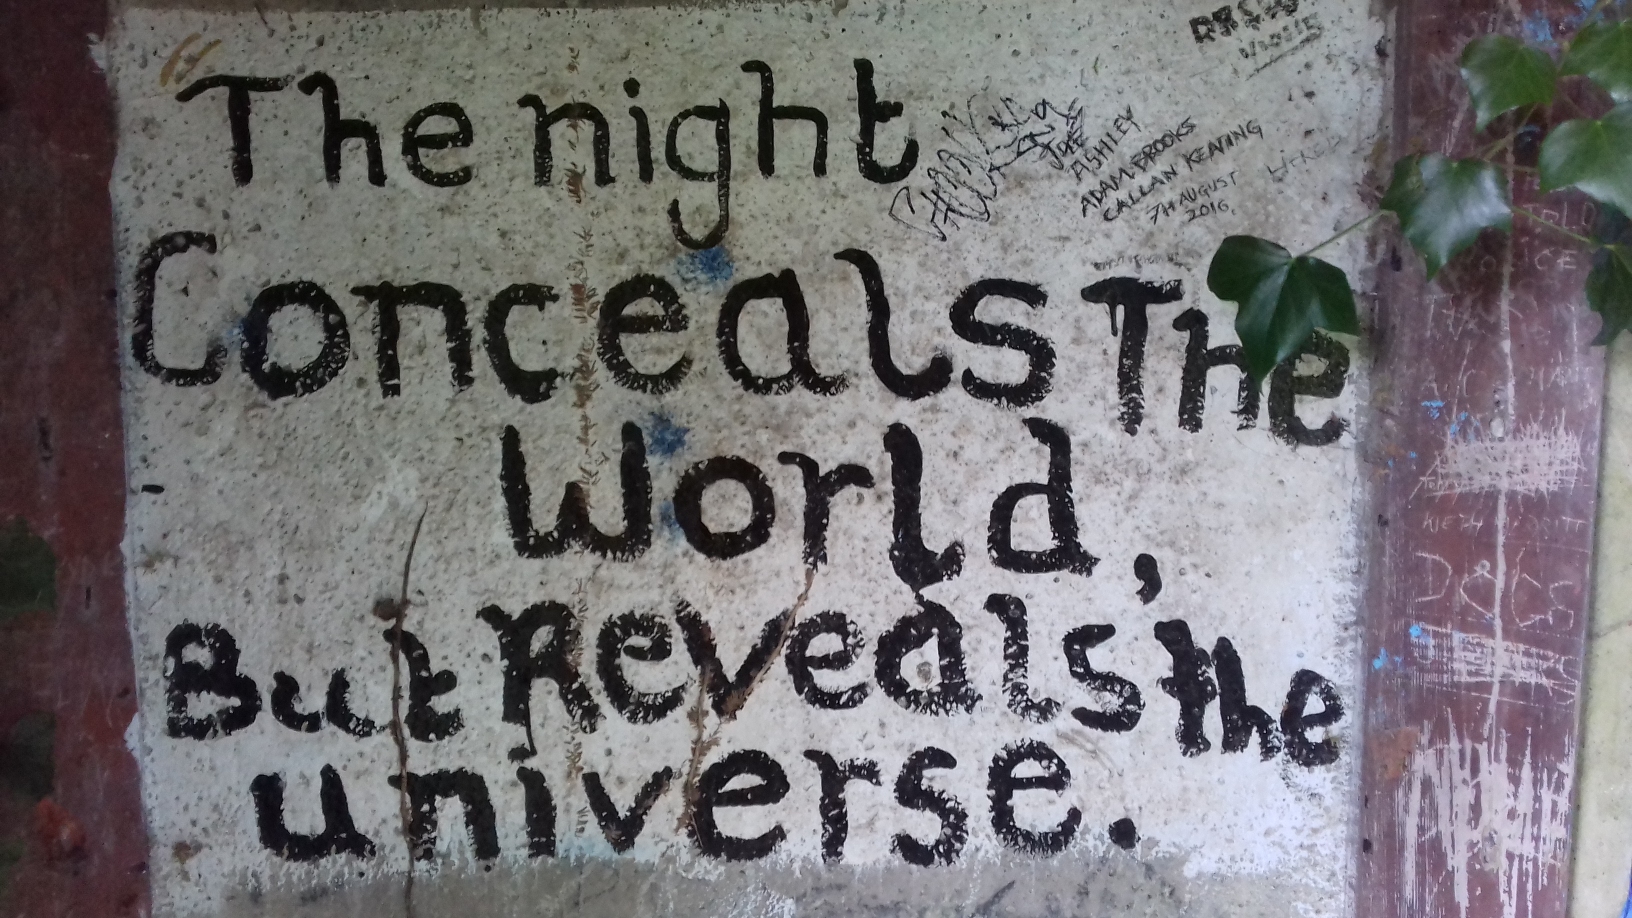 The night
Conceals The
World,
But Reveals the
universe.
JOE
ASHLEY
ADAM.BROOKS
CALLAN KEATING
7H AUGUST
2016.